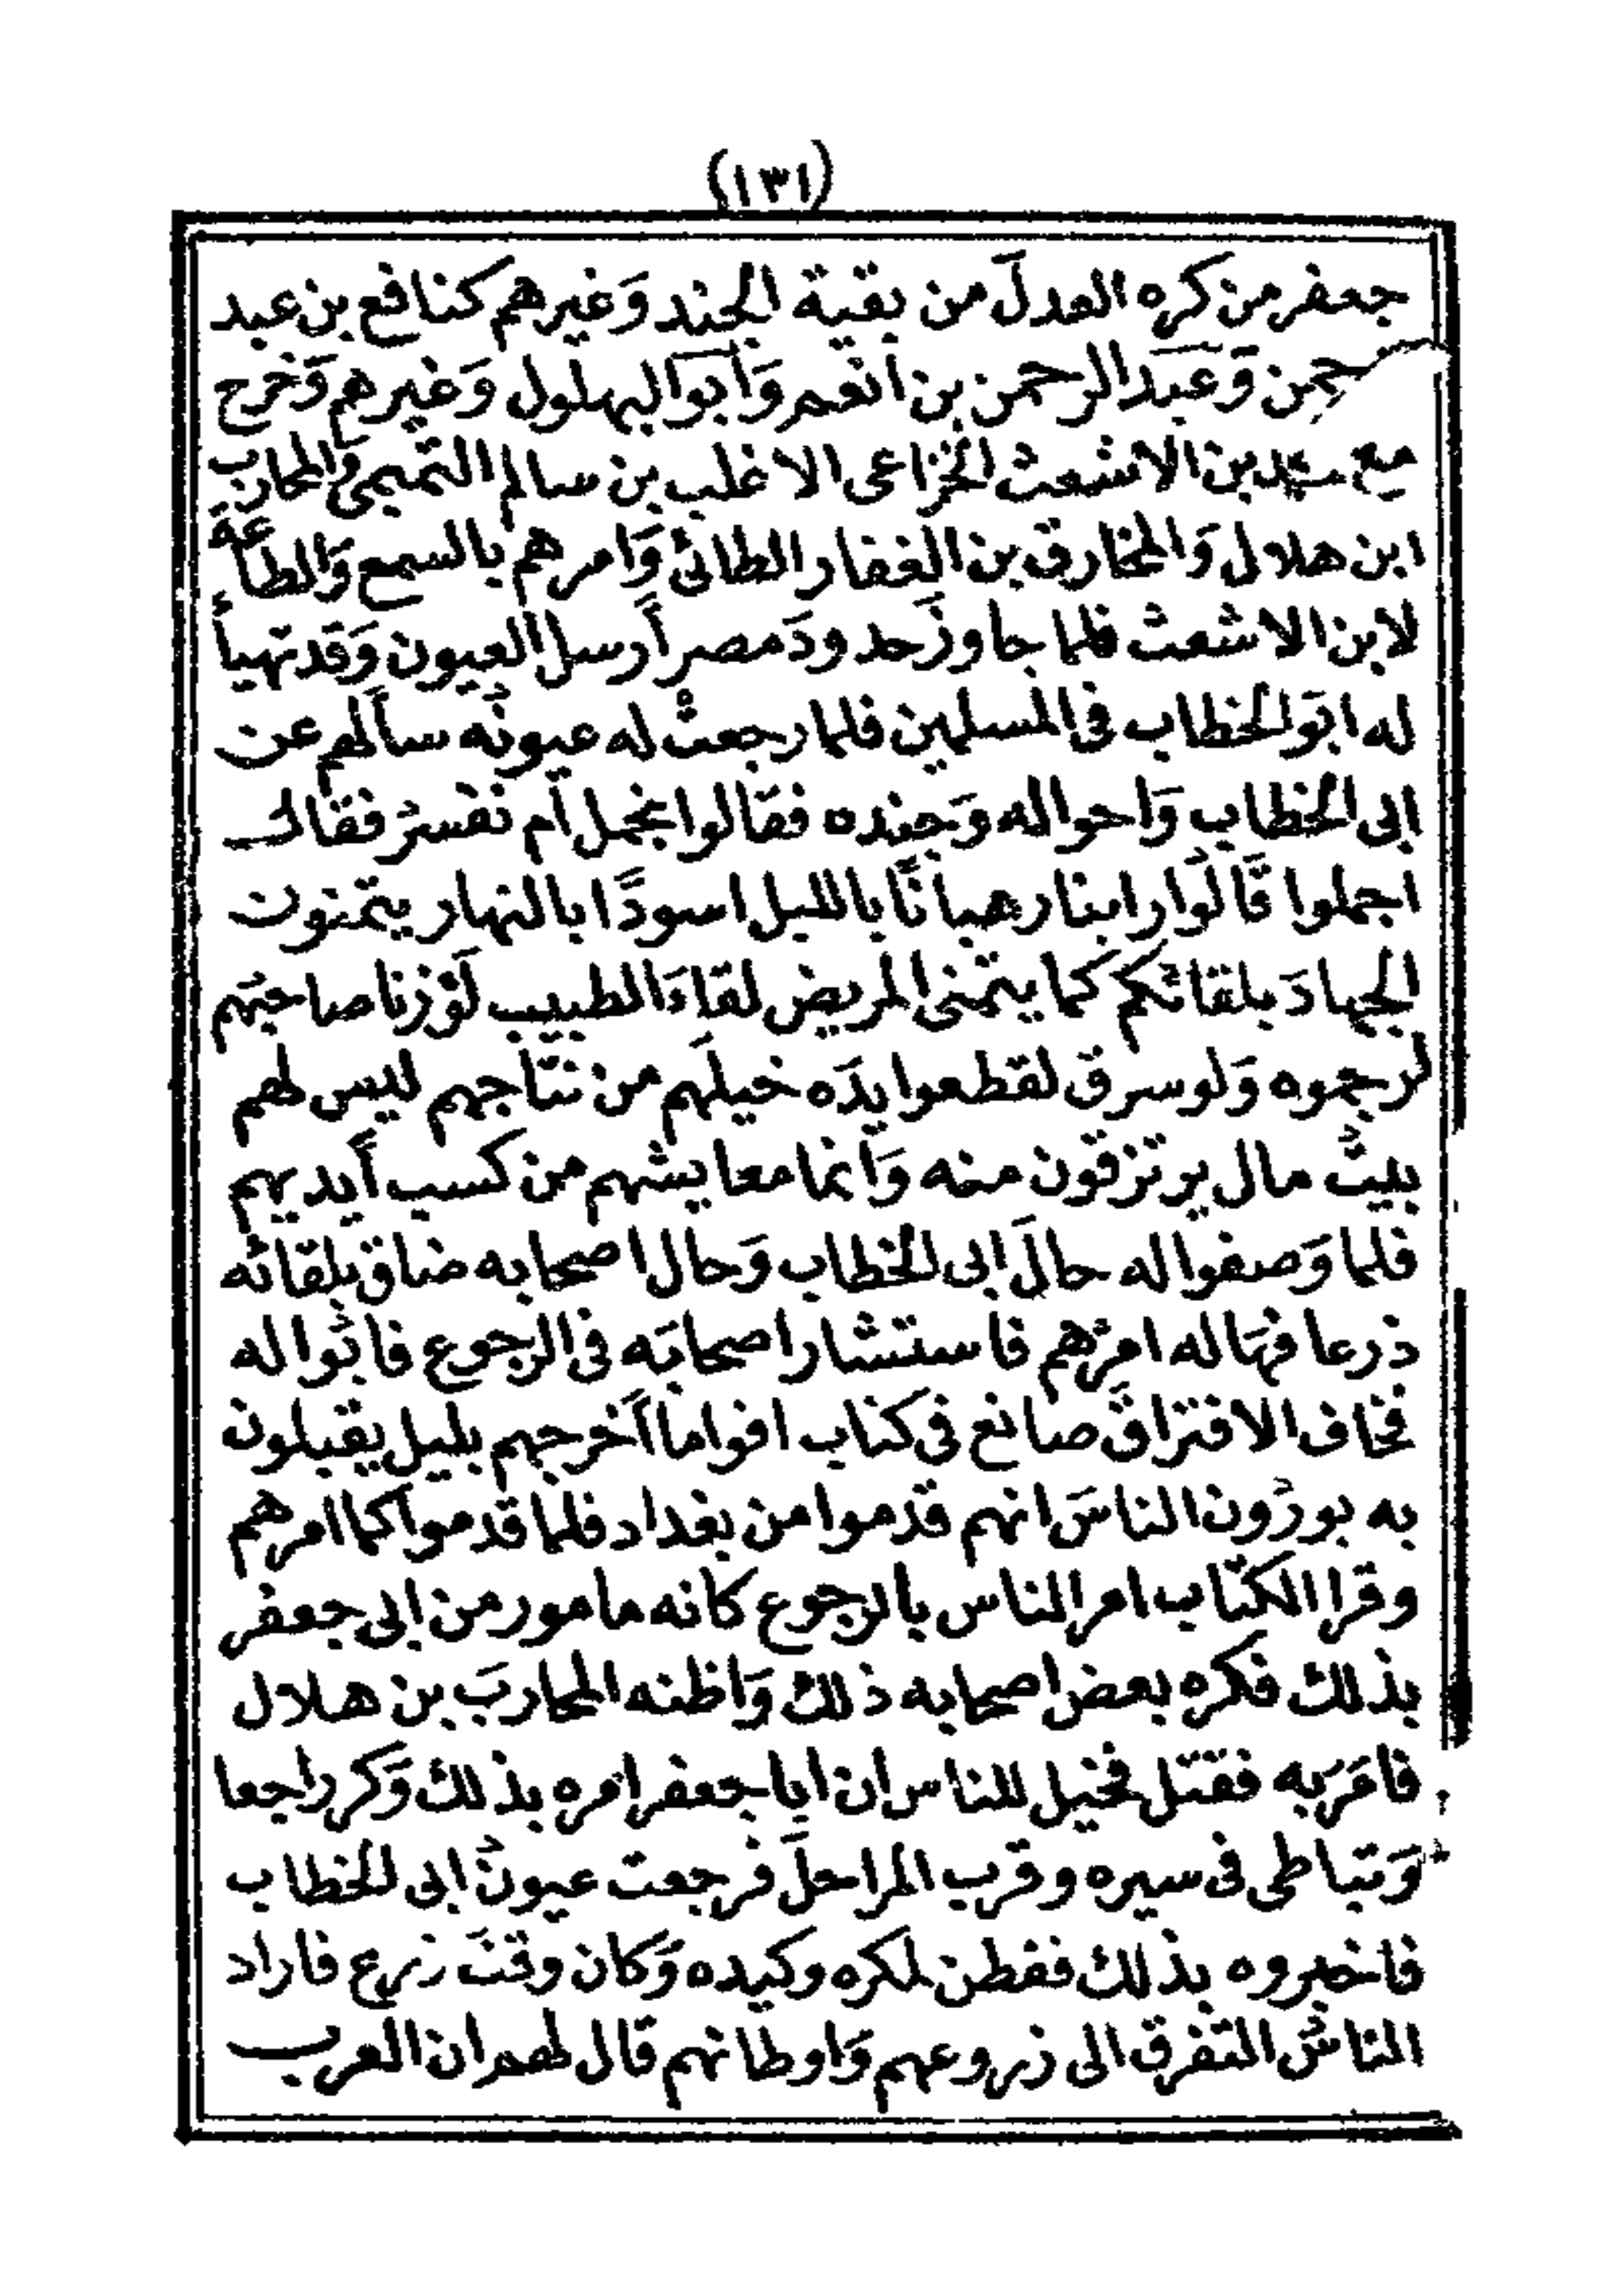 (١٣١)
جعفر من كره العدلَ من بقية الجند وَغيرهم كنافع بن عبد
حمن وَعبَد الرحمن بن انعم وَأبوَ البهلول وَغيرهم وَخرج
مع محمد بن الاشعث الخزاعى الاغلب بن سالم التميمى وَالمحارب
ابن هلال وَالمخارق بن الغفار الطائى وَامرهم بالسمع وَالطاعة
لابن الاشعث فلما جاوزَ حدودَ مصر أرسل العيون وَقد تهيأ
له ابوَ الخطاب فى المسلمين فلما رجعتْ له عيونُه سألهم عن
ابى الخطاب وَاحواله وَجنده فقالوا نجمل أم نفسرُ فقال
اجملوا قَالُوا راينا رهبانًا بالليل اسودًا بالنهار يتمنون
الجهادَ بلقائكم كما يتمنى المريض لقاءَ الطبيب لَوْ زنا صاحبَهم
لرجموه وَلو سرق لقطعوا يدَه خيلَهم من نتَاجهم ليس لهم
بيتُ مال يرتزقون منه وَانما معايشهم من كسب أيديهم
فلما وَصفوا له حالَ ابى الخطاب وَحال اصحابه ضاق بلقائه
ذرعا فهَاله امرُهم فاستشار اصحابَه فى الرجوع فابُوا له
فخاف الافتراقَ صانع فى كتاب اقواما أخرجهم بليل يقبلون
به يورُون الناسَ انهم قدموا من بغداد فلما قدموا كما امرهم
وقرا الكتاب امر الناس بالرجوع كانه مامور من ابى جعفر
بذلك فكره بعض اصحابه ذلك وَاظنه المحاربَ بن هلال
فامَرَ به فقتل فخيل للناس ان ابا جعفر امره بذلك وَكر راجعا
وَتباطى فى سيره وقرب المراحلَ فرجعت عيونُ ابى الخطاب
فاخبروه بذلك ففطن لمكره وكيده وَكان وقتَ زرع فاراد
الناسُ التفرق الى زروعهم وَاوطانهم قال لهم ان العرب